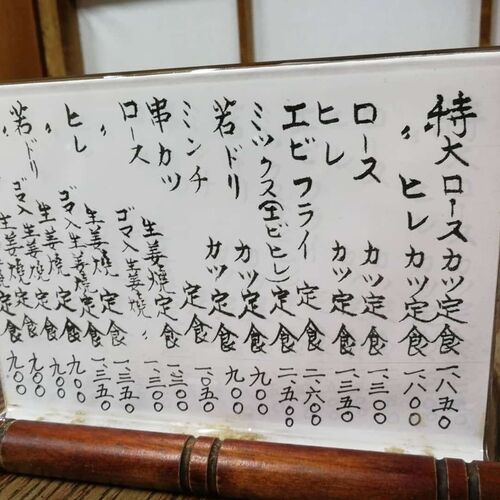 特大ロースカツ定食 一、八五〇
〃 ヒレカツ定食 一、八〇〇
ロース カツ定食 一、三〇〇
ヒレ カツ定食 一、三五〇
エビフライ 定食 二、六〇〇
ミックス(エビヒレ)定食
若ドリ カツ定食 九〇〇
ミンチ カツ定食 九〇〇
串カツ 定食 一、〇五〇
ロース 生姜焼定食 一、三〇〇
〃 ゴマ入生姜焼〃 一、三五〇
ヒレ 生姜焼定食
〃 ゴマ入生姜焼定食
若ドリ 生姜焼定食 九〇〇
〃 ゴマ入生姜焼定食 九〇〇